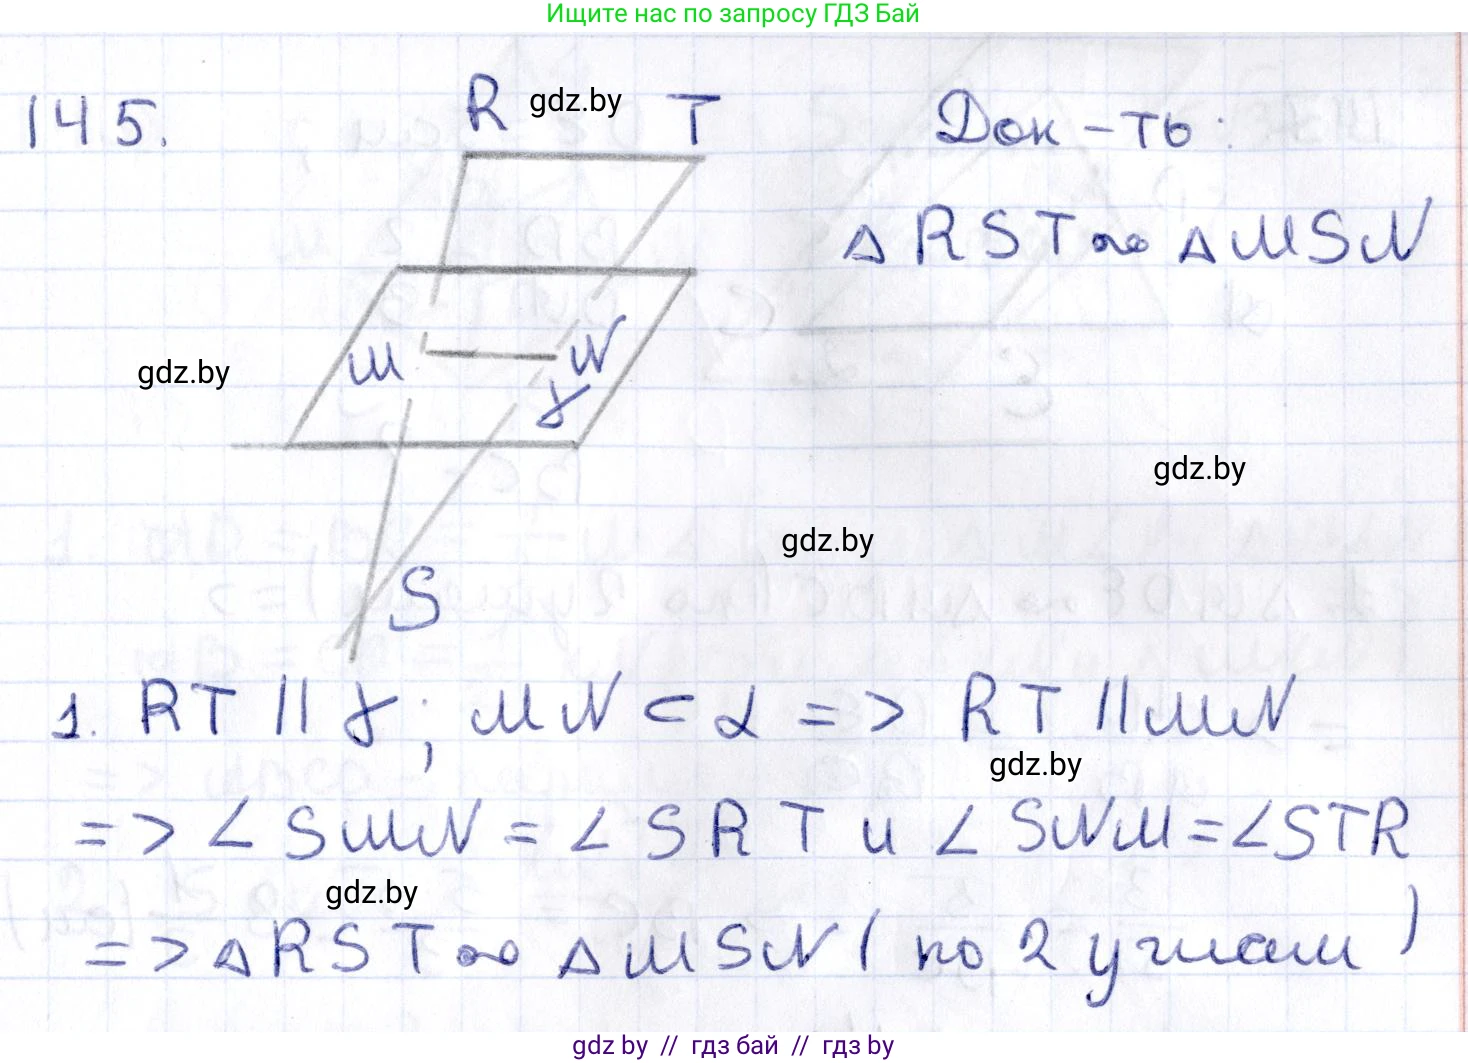 Ищите нас по запросу ГДЗ Бай
145.
R gdz.by T
Док-ть:
△RST ∾ △MSN
M N
γ
gdz.by
gdz.by
gdz.by
S
1. RT || γ; MN ⊂ α => RT || MN
gdz.by
=> ∠SMN = ∠SRT и ∠SNM = ∠STR
gdz.by
=> △RST ∾ △MSN (по 2 углам)
gdz by // гдз бай // гдз by